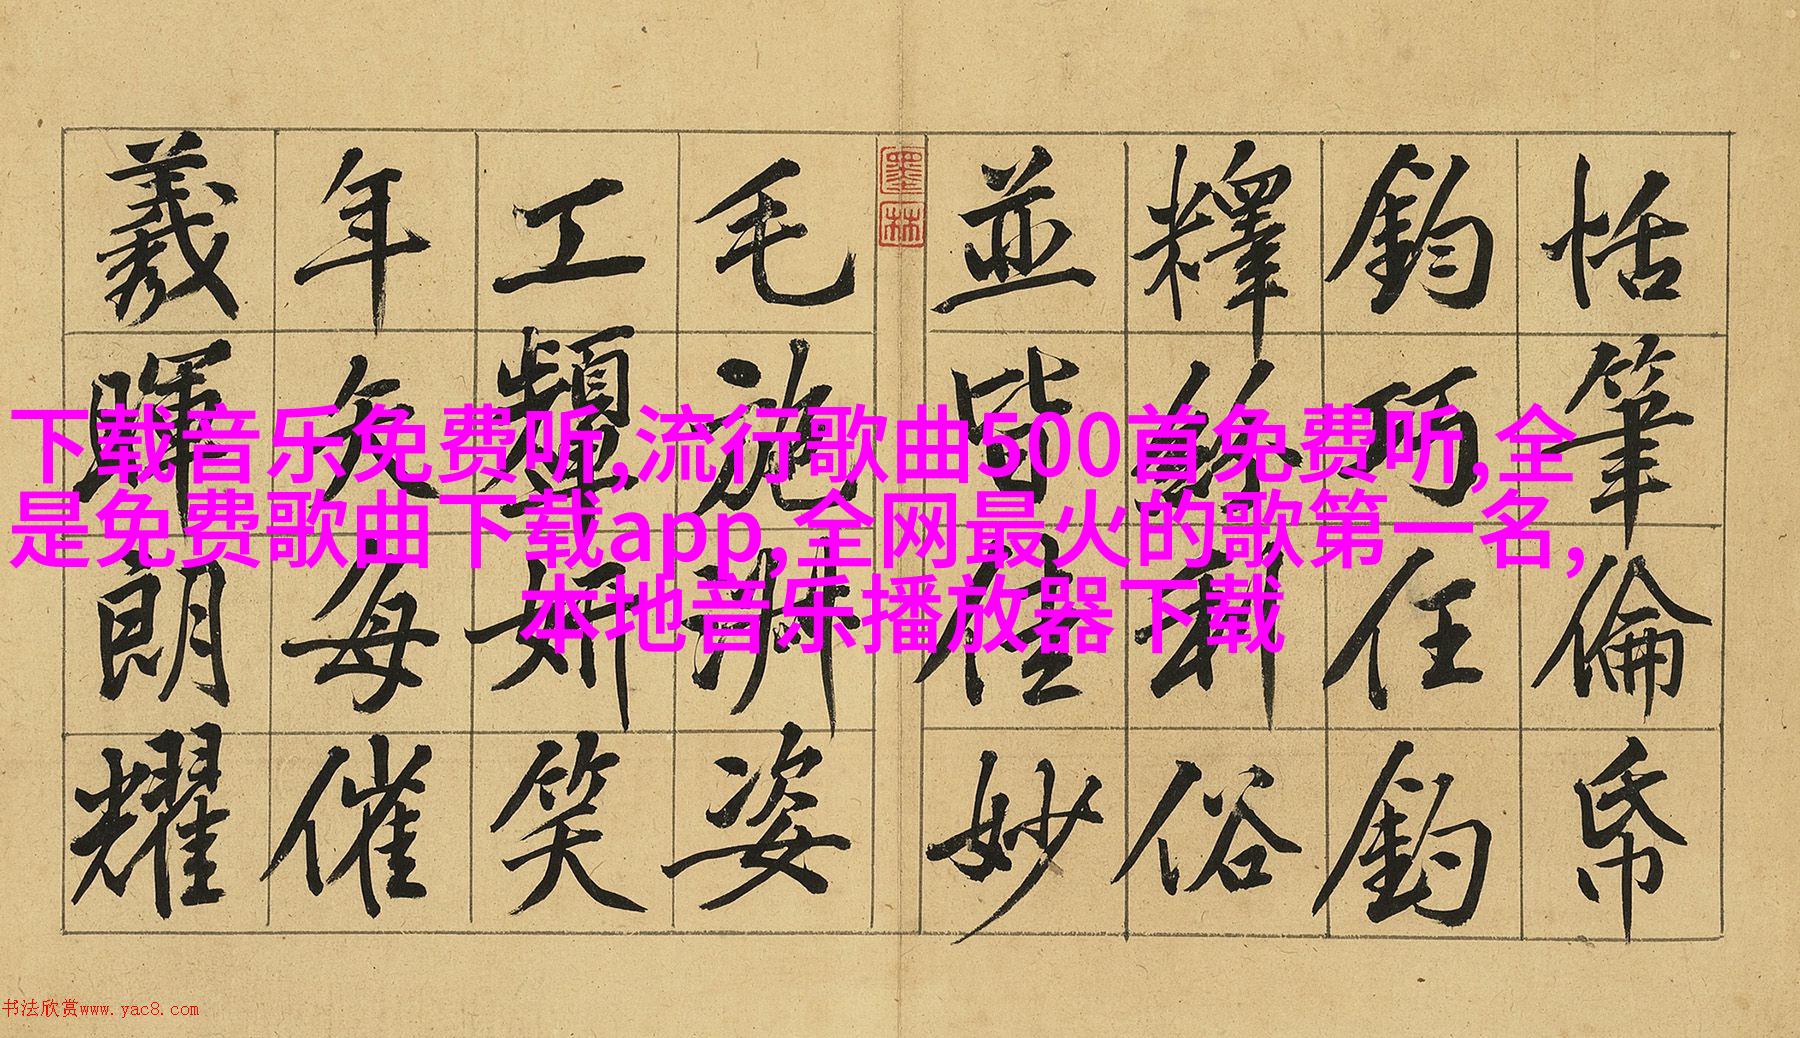 恬筆倫帋
鈞巧任釣
釋紛利俗
並皆佳妙
墨林
毛施淑姿
工顰妍笑
年矢每催
羲暉朗耀
下载音乐免费听,流行歌曲500首免费听,全
是免费歌曲下载app,全网最火的歌第一名,
本地音乐播放器下载
书法欣赏www.yac8.com